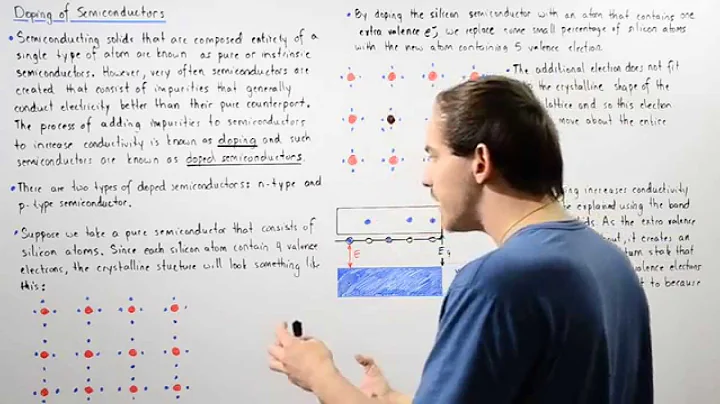 Doping of Semiconductors
• Semiconducting solids that are composed entirely of a
single type of atom are known as pure or instrinsic
semiconductors. However, very often semiconductors are
created that consist of impurities that generally
conduct electricity better than their pure counterpart.
The process of adding impurities to semiconductors
to increase conductivity is known as doping and such
semiconductors are known as doped semiconductors.
• There are two types of doped semiconductors: n-type and
p-type semiconductor.
• Suppose we take a pure semiconductor that consists of
silicon atoms. Since each silicon atom contain 4 valence
electrons, the crystalline stucture will look something like
this:
• By doping the silicon semiconductor with an atom that contains one
extra valence e⁻, we replace some small percentage of silicon atoms
with the new atom containing 5 valence electron.
• The additional electron does not fit
the crystalline shape of the
lattice and so this electron
move about the entire
ing increases conductivity
explained using the band
ids. As the extra valence
out, it creates an
tum state that
valence electrons
to because
E
E